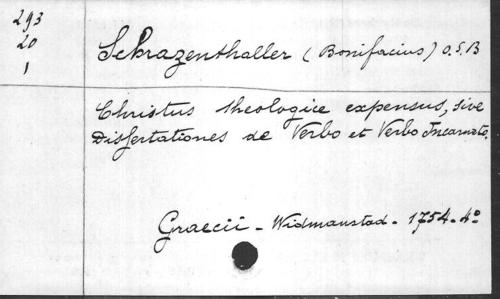 293
20
1
Schrazenthaller (Bonifacius) O.S.B
Christus theologice expensus, sive
Dissertationes de Verbo et Verbo Incarnato.
Graecii - Widmanstad - 1754 - 4º